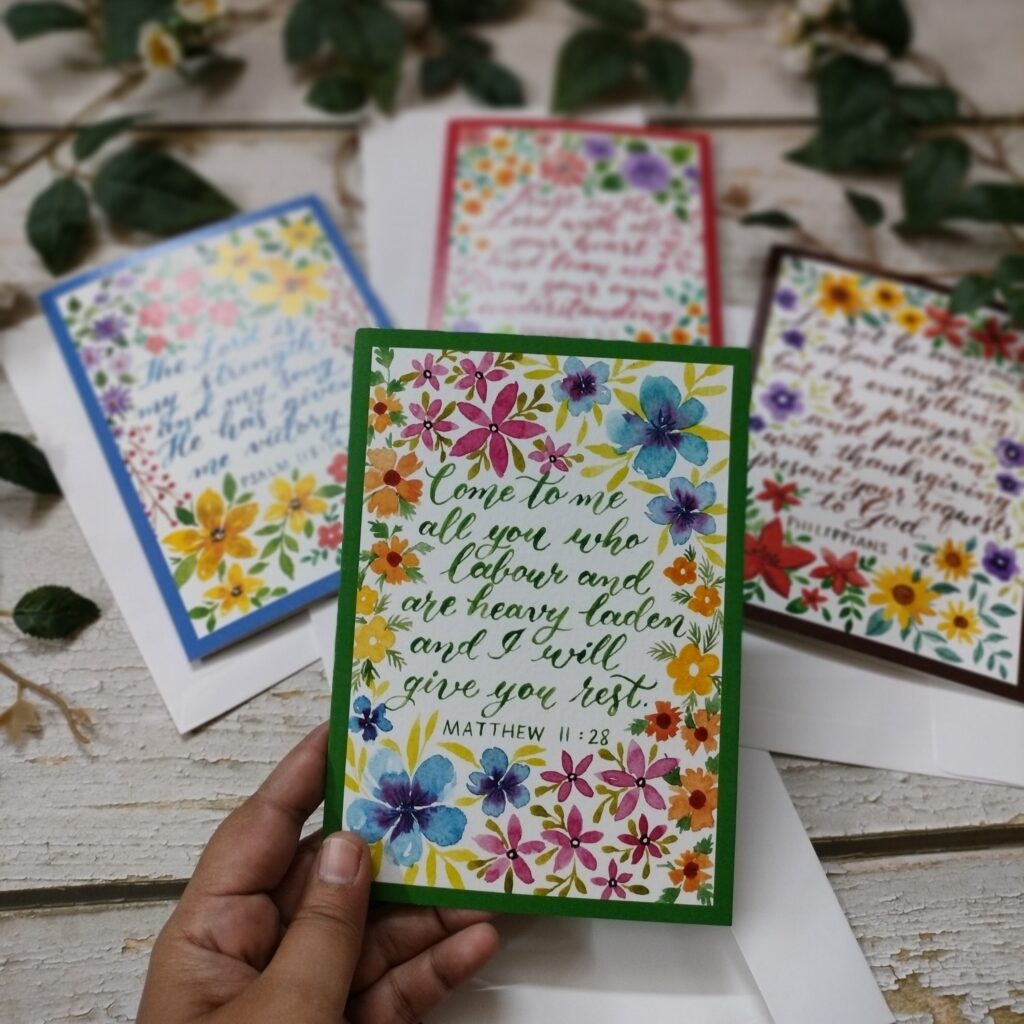 Trust in the
Lord with all
your heart
and lean not
on your own
understanding
The Lord is
my strength
and my song
He has given
me victory
PSALM 118:
about anything
but in everything
by prayer
and petition
with thanksgiving
present your requests
to God.
PHILIPPIANS 4:
Come to me
all you who
labour and
are heavy laden
and I will
give you rest.
MATTHEW 11:28